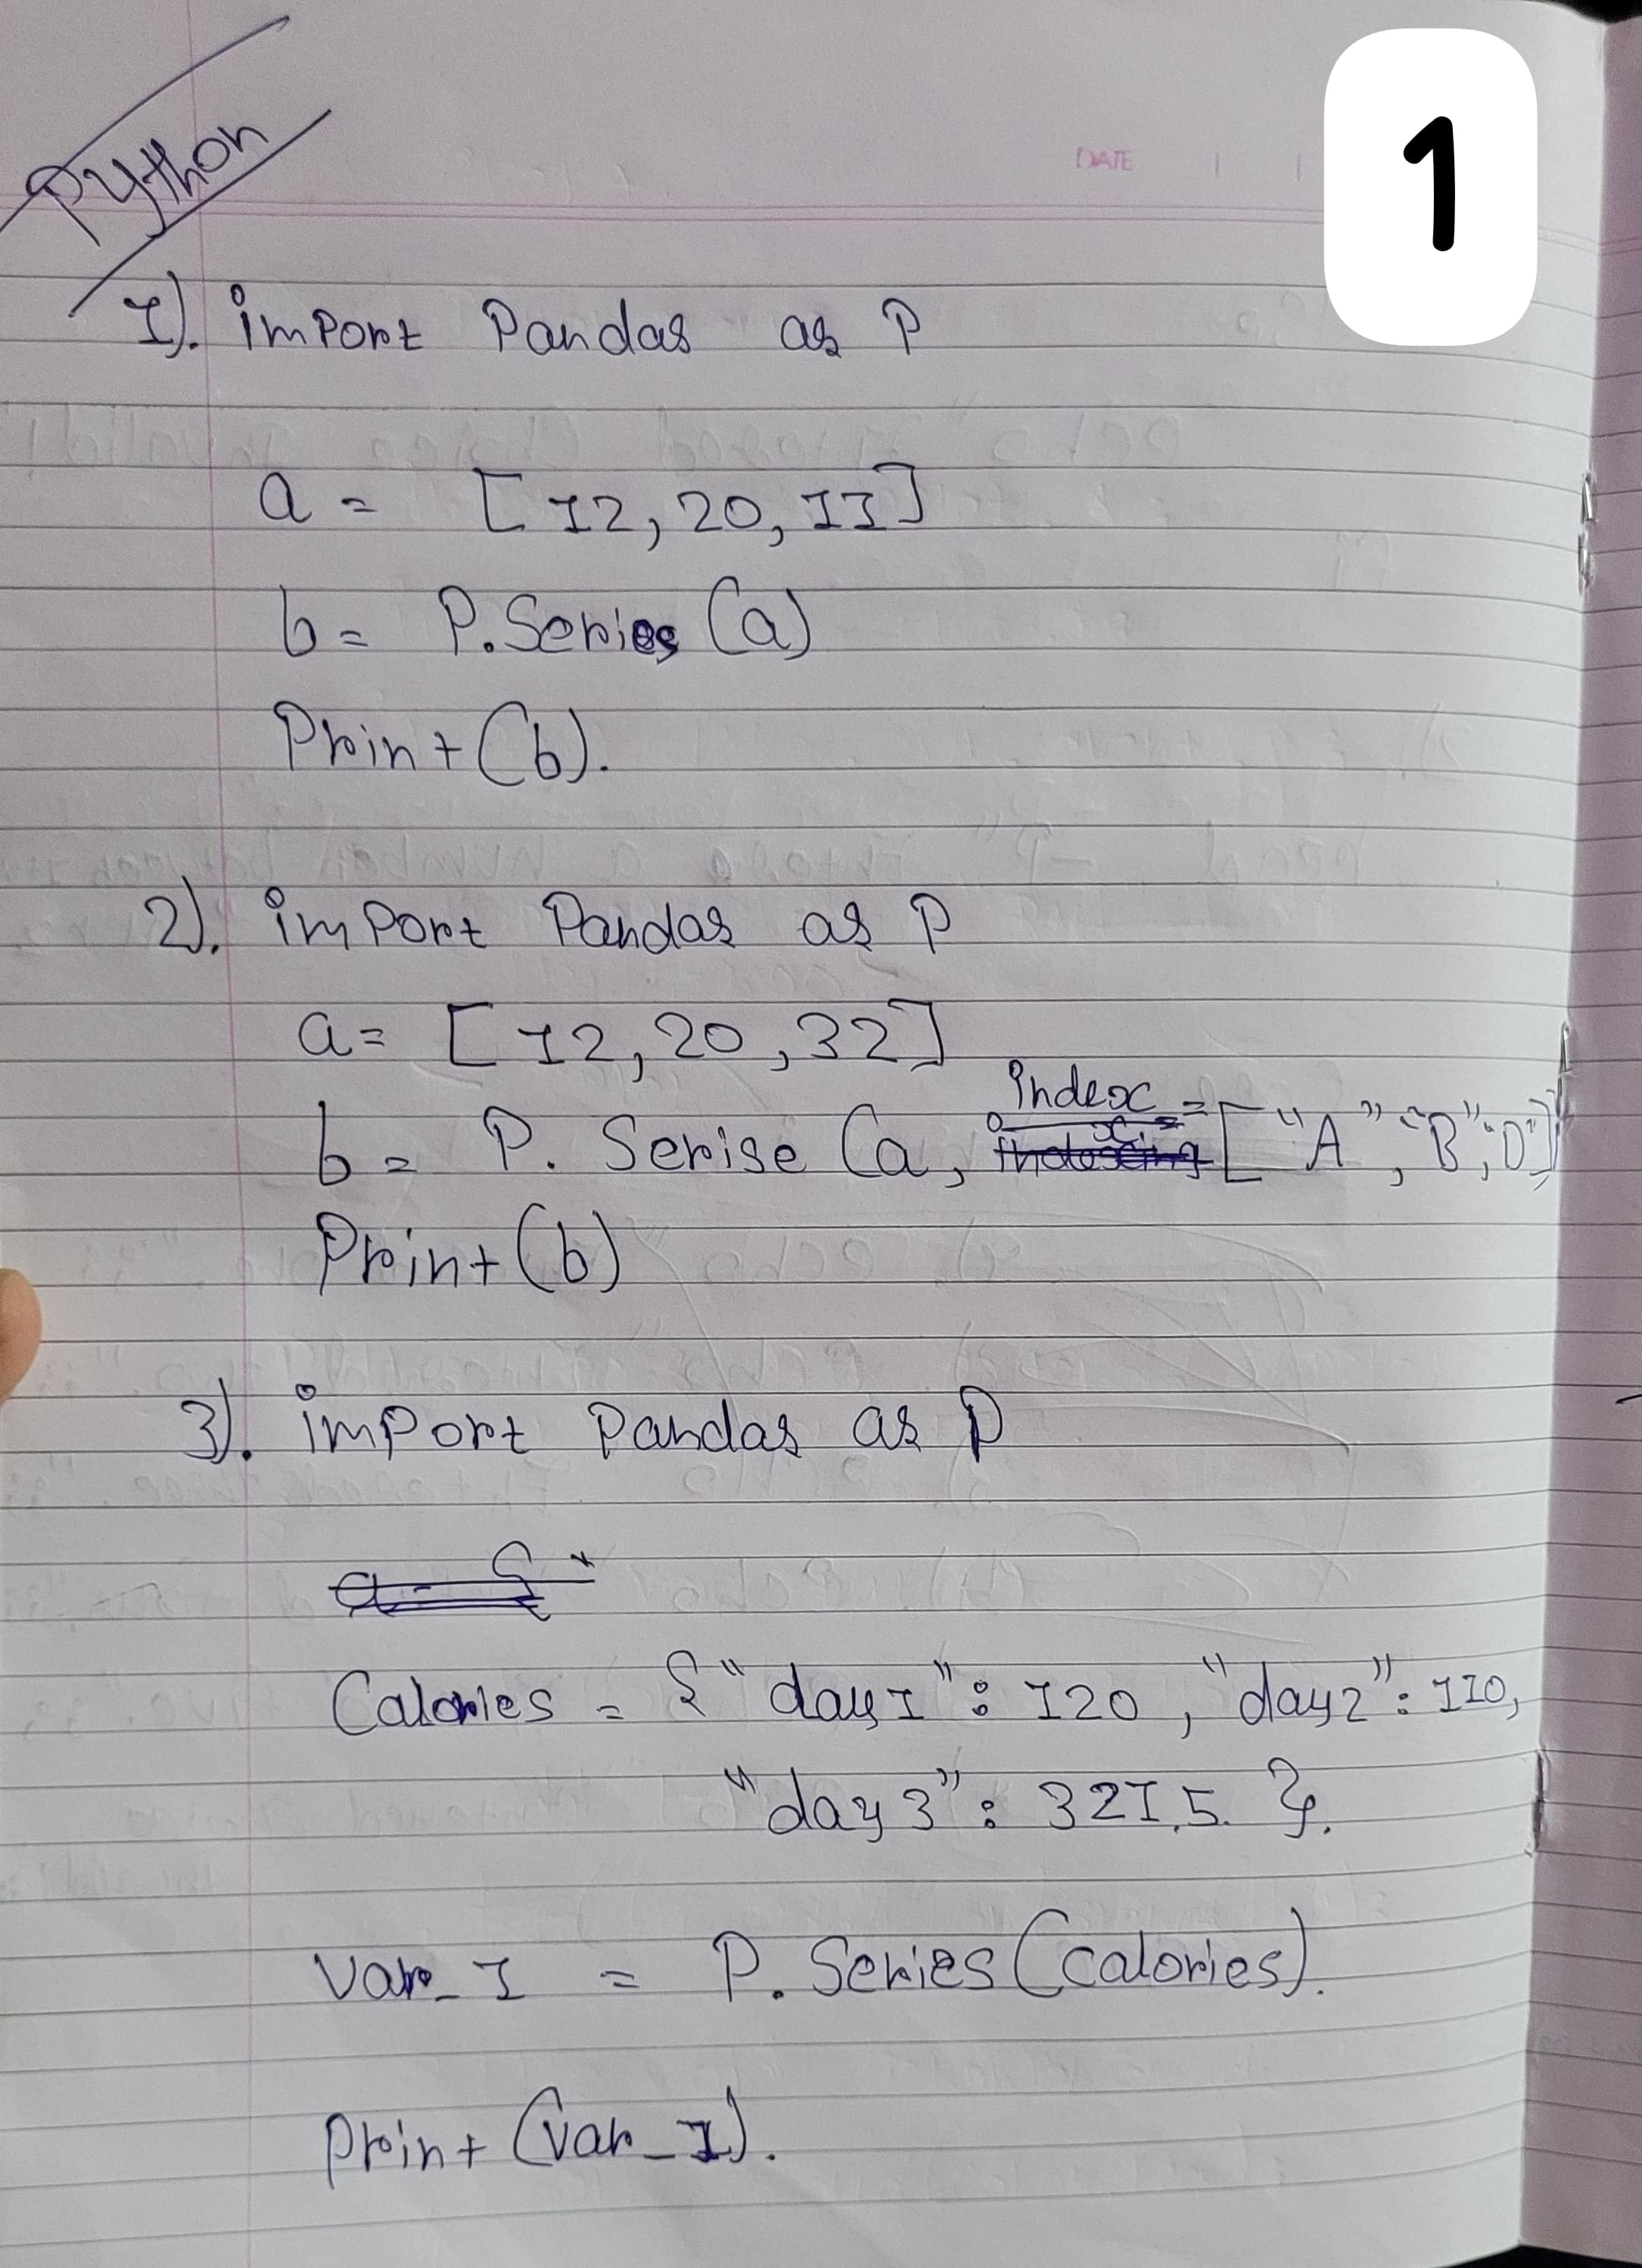 1
DATE
Python
1). import Pandas as P
a = [12, 20, 11]
b = P.Series (a)
Print (b).
2). import Pandas as P
a = [12, 20, 32]
b = P. Serise (a, index = ["A", "B", "D"]
Print (b)
3). import Pandas as P
Calories = { "day1" : 120 , "day2" : 110,
"day3" : 321.5. }.
Var_1 = P. Series (calories).
Print (Var_1).